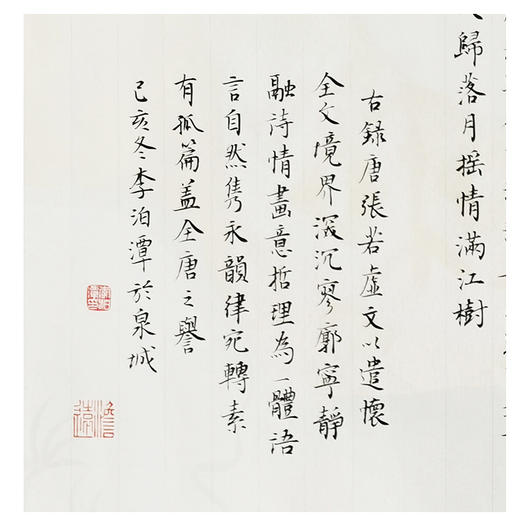 歸落月摇情滿江樹
右録唐張若虛文以遣懷
全文境界深沉寥廓寧靜
融詩情畫意哲理為一體語
言自然雋永韻律宛轉素
有孤篇盖全唐之譽
己亥冬李泊潭於泉城